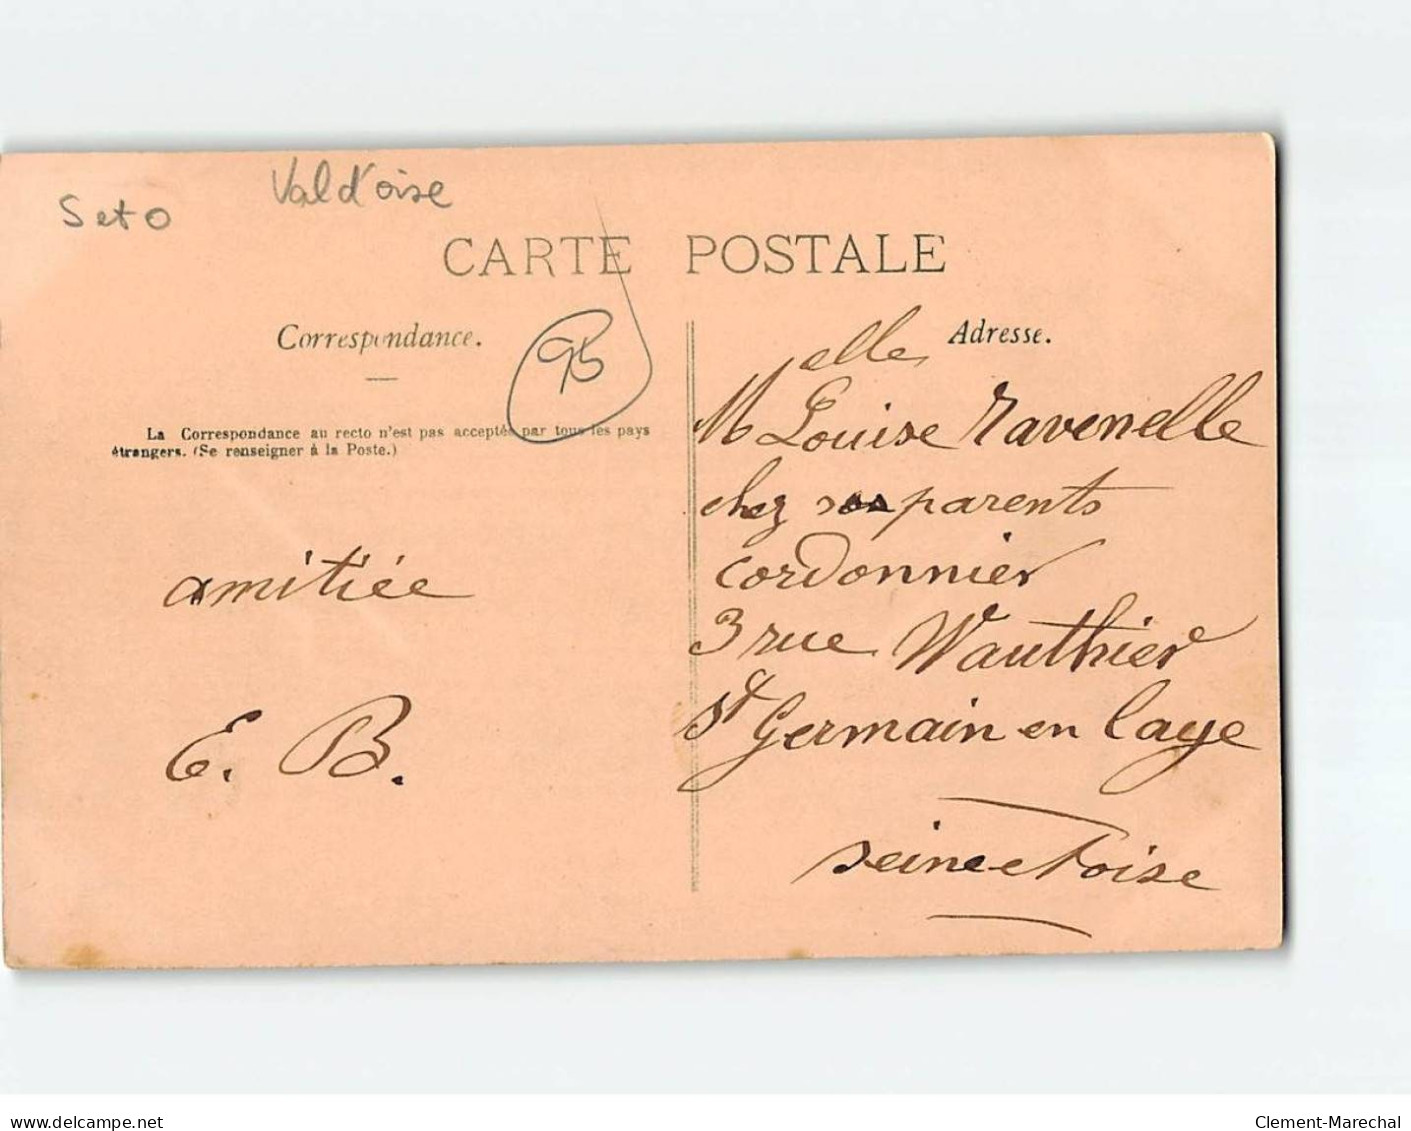 Val d'oise
S et O
CARTE POSTALE
Correspondance.
95
La Correspondance au recto n'est pas acceptée par tous les pays
étrangers. (Se renseigner à la Poste.)
amitiée
E. B.
Adresse.
Melle Louise Ravenelle
chez ses parents
cordonnier
3 rue Wauthier
St Germain en Laye
seine et oise
www.delcampe.net
Clement-Marechal